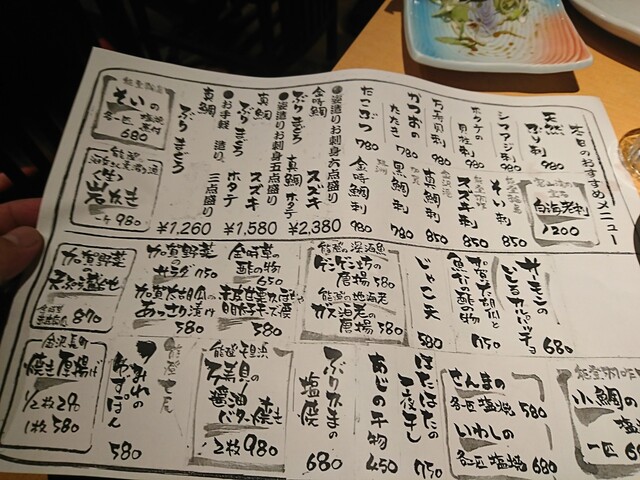 本日のおすすめメニュー
天然ぶり刺
980
シマアジ刺
980
ホタテの貝柱刺
780
万寿貝刺
780
かつおのたたき
780
たこぶつ
780
白海老刺
1200
そい刺
850
スズキ刺
850
真鯛刺
850
黒鯛刺
780
金時鯛刺
780
●姿造りお刺身六点盛り
金時鯛
ぶり まぐろ
真鯛 ホタテ
スズキ
¥2,380
●姿造りお刺身五点盛り
真鯛
ぶり まぐろ
ホタテ
スズキ
¥1,580
●お手軽造り 三点盛り
真鯛
ぶり まぐろ
¥1,260
そいの
各一匹 塩焼 煮付
680
能登
岩がき
一ケ 980
サーモンの
シーザーカルパッチョ
680
加賀太胡瓜と
魚だの酢の物
750
じゃこ天
580
能登の深海魚
ゲンゲン坊の
唐揚
580
能登の地海老
ガス海老の
唐揚 580
金時草の
酢の物
650
580
加賀野菜の
サラダ 750
加賀太胡瓜の
あっさり漬け
580
加賀野菜
天ぷら盛合せ
870
小鯛の
塩焼
一匹
さんまの
各一匹 塩焼 580
いわしの
各一匹 塩焼 680
はたはたの
一夜干し
750
あじの干物
450
ぶりかまの
塩焼
680
能登千里浜
万寿貝の
醤油
バター焼き
2枚 980
能登七尾
つみれの
580
金沢長町
焼き厚揚げ
1/2枚 290
1枚 580